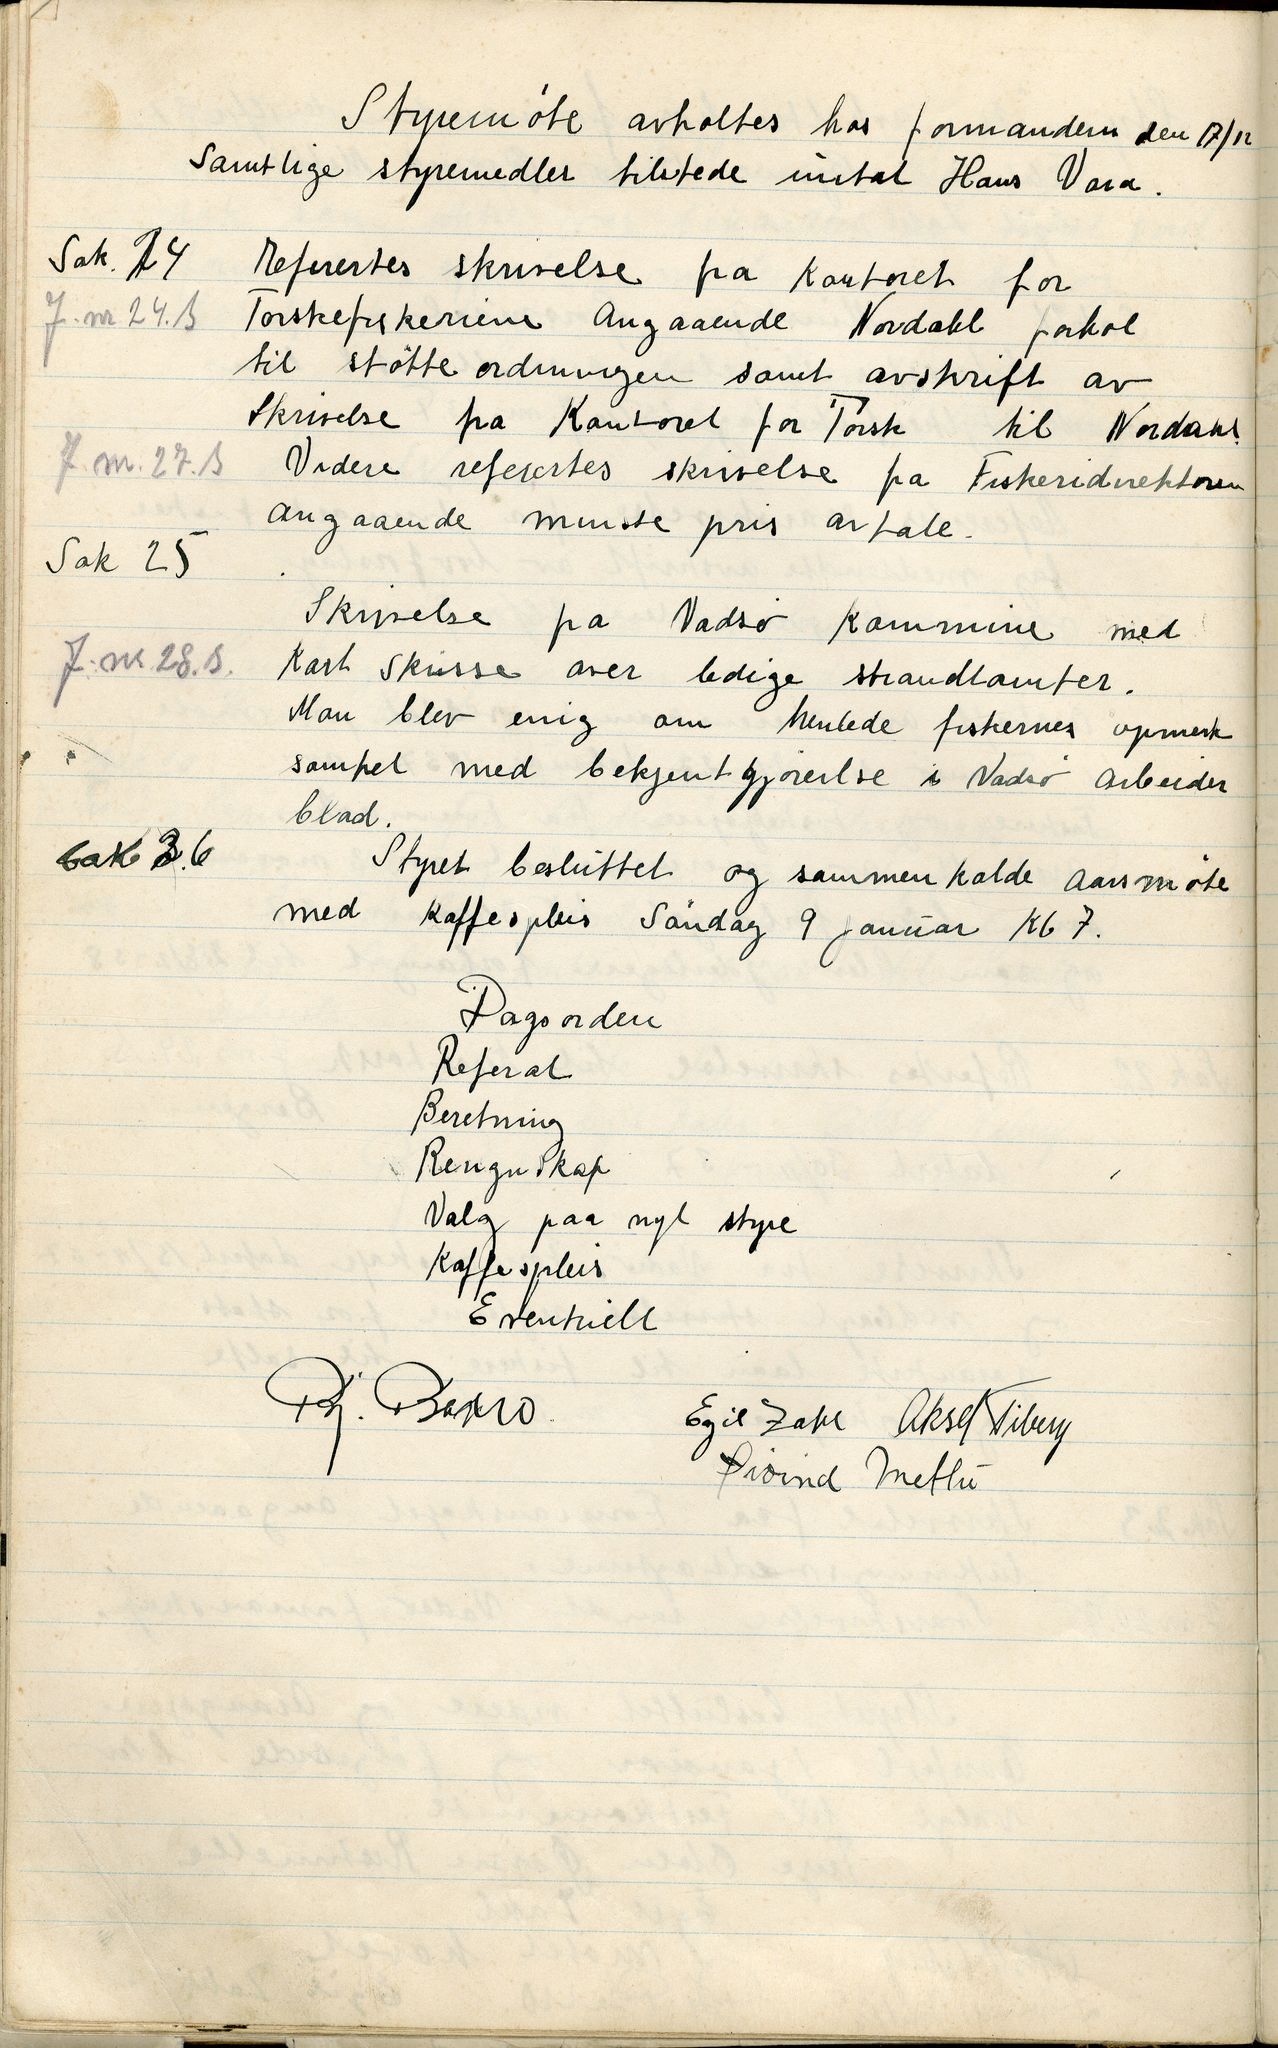 Styremöte avholtes hos formandern den 17/12
Samtlige styremedler tilstede untat Hans Vara.
Sak. 24 Referertes skrivelse fra Kontoret for
J. nr 24. B Torskefiskeriene Angaaende Nordahl forhol
til støtte ordningen samt avskrift av
Skrivelse fra Kontoret for Torsk til Nordahl.
J. nr. 27. B Videre referertes skrivelse fra Fiskeridirektören
angaaende minste pris avtale.
Sak 25
Skrivelse fra Vadsö Kommune med
J. nr 28. B. Kart Skisse over ledige strandtomter.
Man blev enig om henlede fiskernes opmerk
somhet med bekjentgjörelse i Vadsö Arbeider
blad.
Sak 26 Styret besluttet og sammenkalde Aarsmöte
med Kaffespleis Söndag 9 januar Kl 7.
Dagsorden
Referat
Beretning
Rengnskap
Valg paa nyt styre
Kaffespleis
Eventuell
Egil Zahl Aksel Tiberg
Øivind